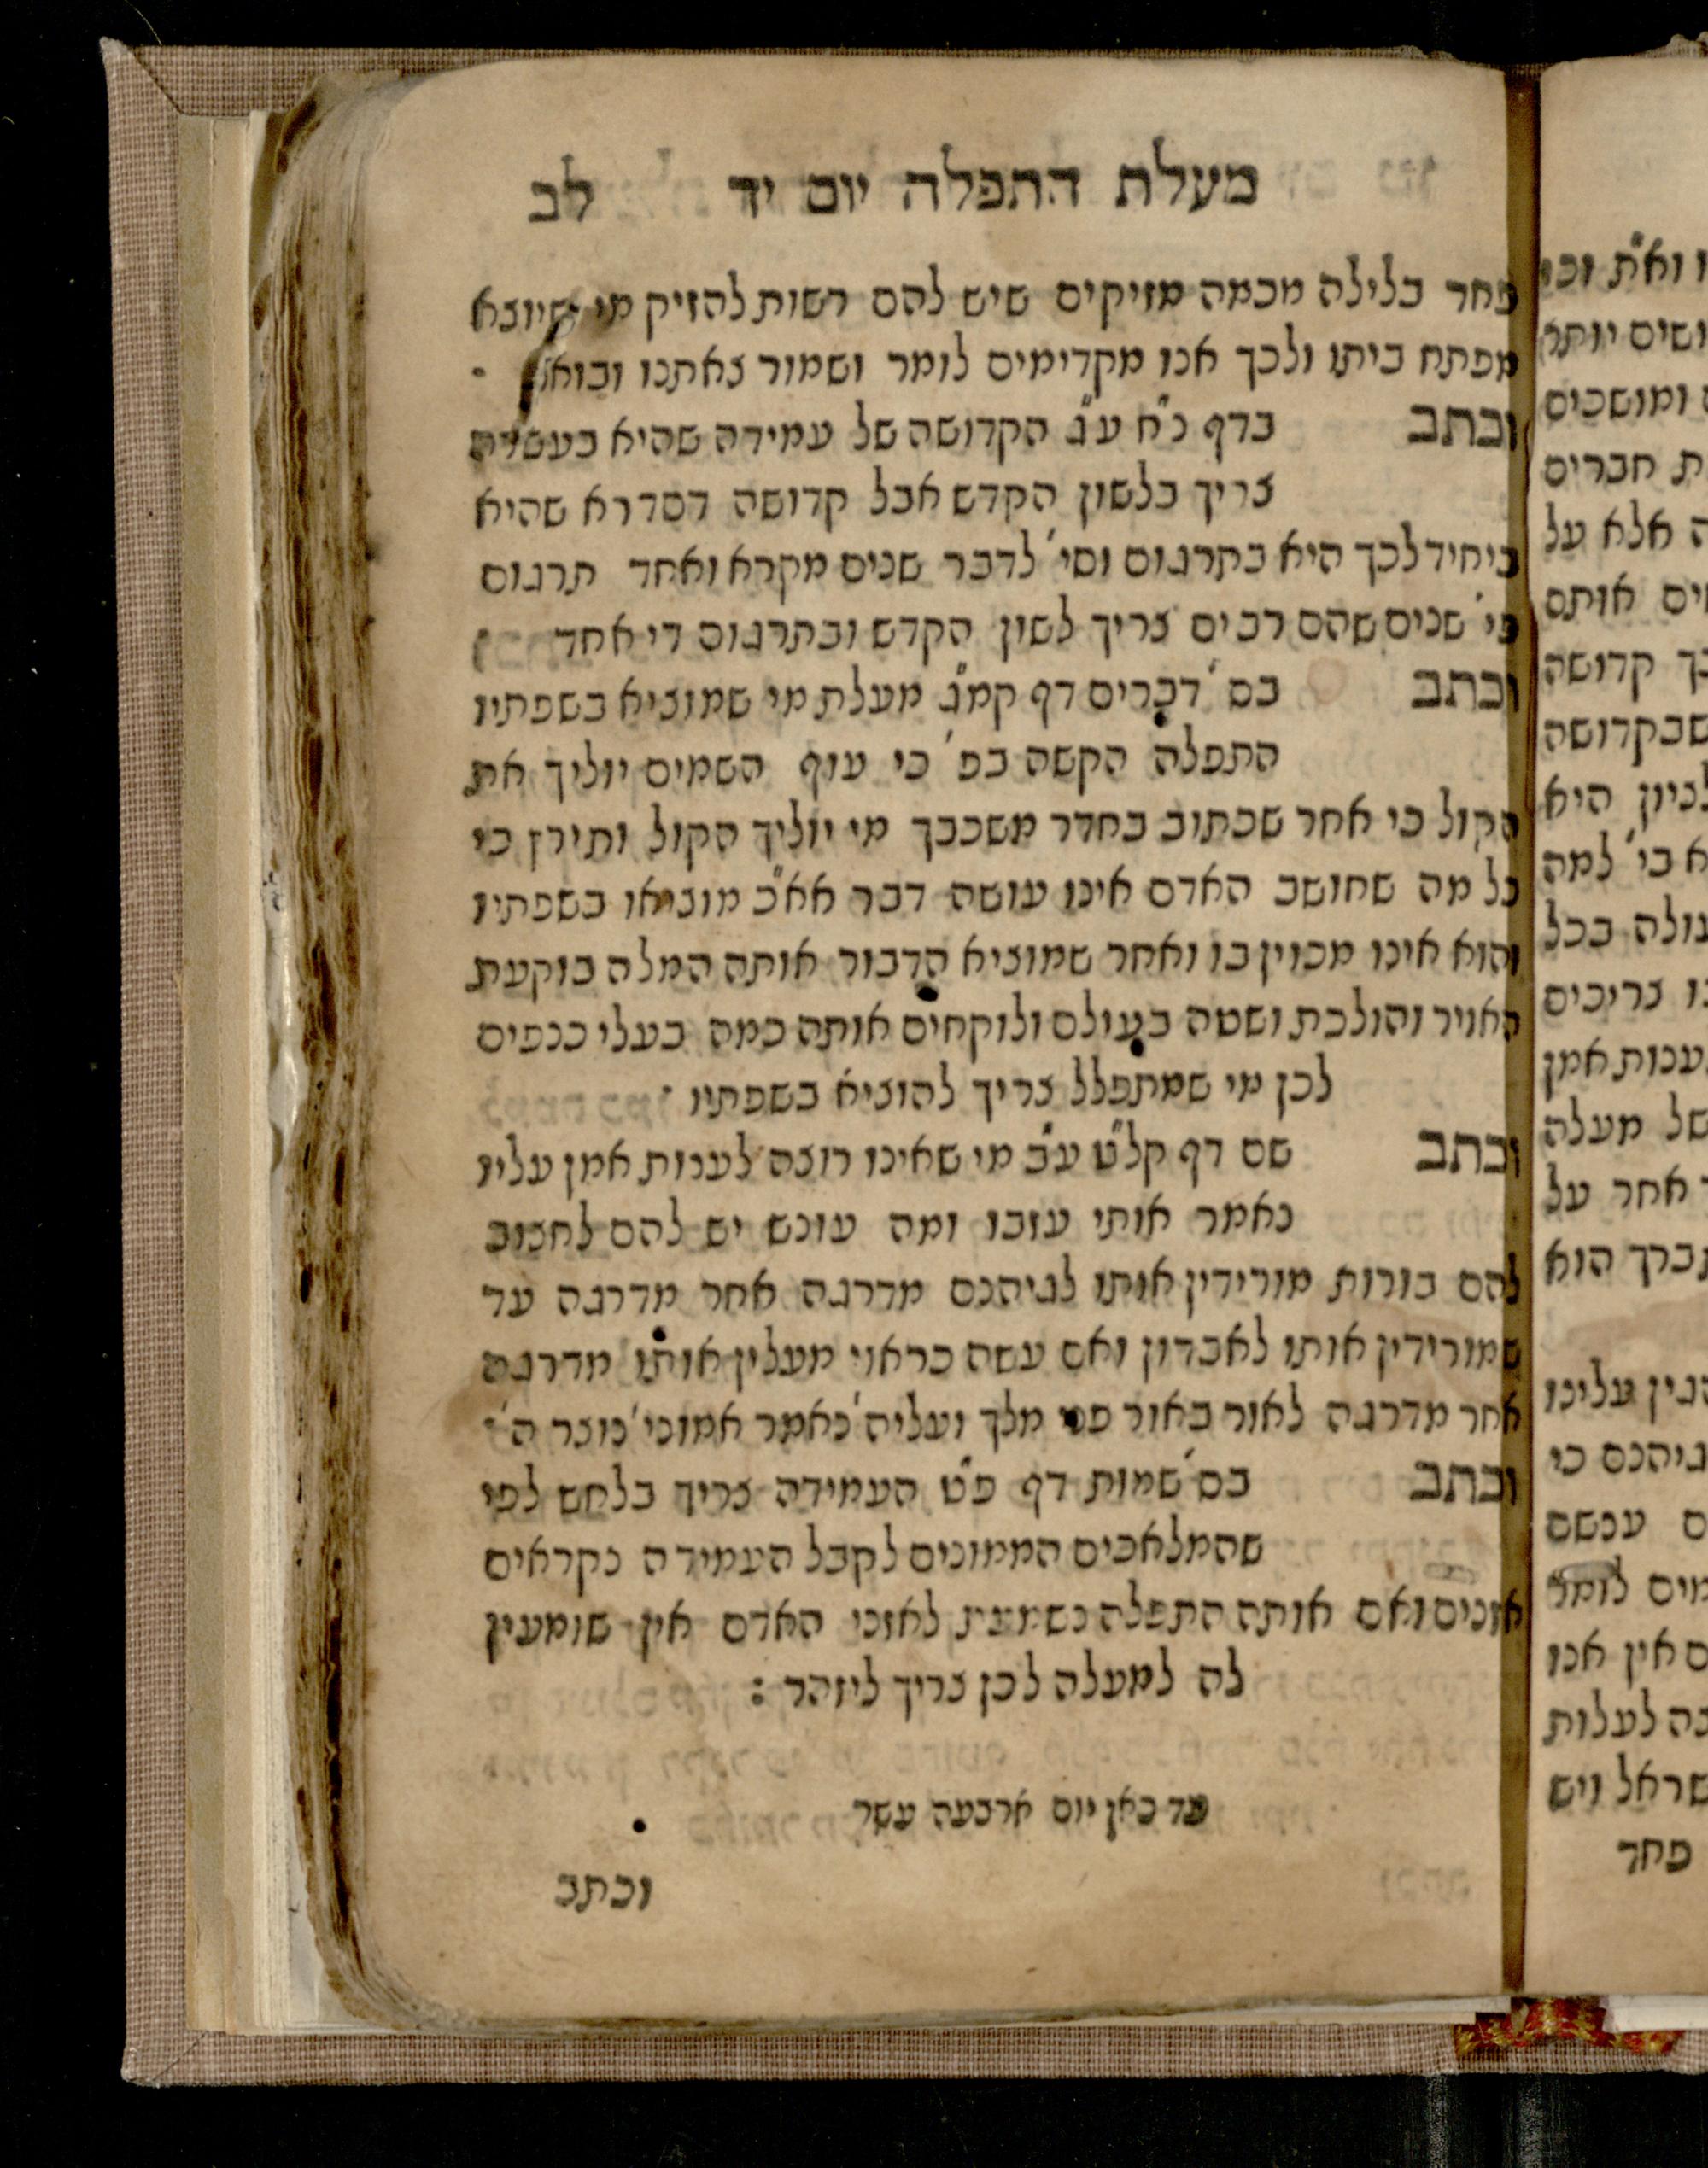 מעלת התפלה יום יד לב
פחד בלילה מכמה מזיקים שיש להם רשות להזיק מי שיוצא
מפתח ביתו ולכך אנו מקדימים לומר ושמור צאתנו ובואנו ·
וכתב בדף כ"ח ע"ג הקדושה של עמידה שהיא בעשרה
צריך בלשון הקדש אבל קדושה דסדרא שהיא
ביחיד לכך היא בתרגום וסי' לדבר שנים מקרא ואחד תרגום
פי' שנים שהם רבים צריך לשון הקדש ובתרגום די אחד
וכתב בס' דברים דף קמ"ג מעלת מי שמוציא בשפתיו
התפלה הקשה בפ' כי עוף השמים יוליך את
הקול כי אחר שכתוב בחדר משכבך מי יוליך הקול ותירץ כי
כל מה שחושב האדם אינו עושה דבר אא"כ מוציאו בשפתיו
והוא אינו מכוין בו ואחר שמוציא הדבור אותה המלה בוקעת
האויר והולכת ושטה בעולם ולוקחים אותה כמה בעלי כנפים
לכן מי שמתפלל צריך להוציא בשפתיו ·
וכתב שם דף קל"ט ע"ב מי שאינו רוצה לענות אמן עליו
נאמר אותי עזבו ומה עונש יש להם לחצוב
להם בורות מורידין אותו לגיהנם מדרגה אחר מדרגה עד
שמורידין אותו לאבדון ואם עשה כראוי מעלין אותו מדרגה
אחר מדרגה לאור באור פני מלך ועליה' נאמר אמוני' נוצר ה' ·
וכתב בס' שמות דף פ"ט העמידה צריך בלחש לפי
שהמלאכים הממונים לקבל העמידה נקראים
אזנים ואם אותה התפלה נשמעת לאזני האדם אין שומעין
לה למעלה לכן צריך ליזהר :
עד כאן יום ארבעה עשר
וכתב
ואת וכו
ושים יותר
ומושכים
ת חברים
ה אלא על
ים אותם
כך קדושה
שבקדושה
לכיון היא
א כי' למה
גולה בכל
נו צריכים
לענות אמן
של מעלה
אחר על
תברך הוא
הגין עלינו
גיהנם כי
ם ענשם
מים לומר
ם אין אנו
בה לעלות
שראל ויש
פחד